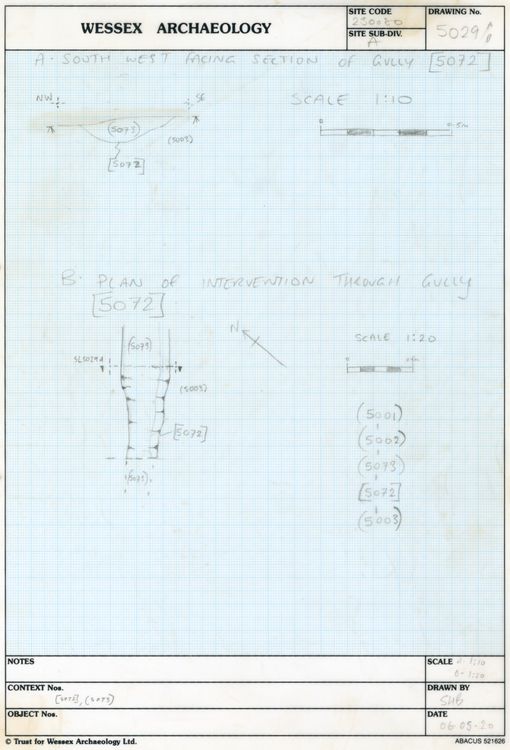 WESSEX ARCHAEOLOGY
SITE CODE
230020
SITE SUB-DIV.
A
DRAWING No.
5029
A. SOUTH WEST FACING SECTION OF GULLY [5072]
NW
SE
SCALE 1:10
0
0.5m
(5073)
(5003)
[5072]
B. PLAN OF INTERVENTION THROUGH GULLY
[5072]
N
SCALE 1:20
0
(5073)
(5003)
[5072]
(5073)
(5001)
(5002)
(5073)
[5072]
(5003)
NOTES
SCALE A- 1:10
B- 1:20
CONTEXT Nos.
[5072], (5073)
DRAWN BY
OBJECT Nos.
DATE
06-05-20
© Trust for Wessex Archaeology Ltd.
ABACUS 521626